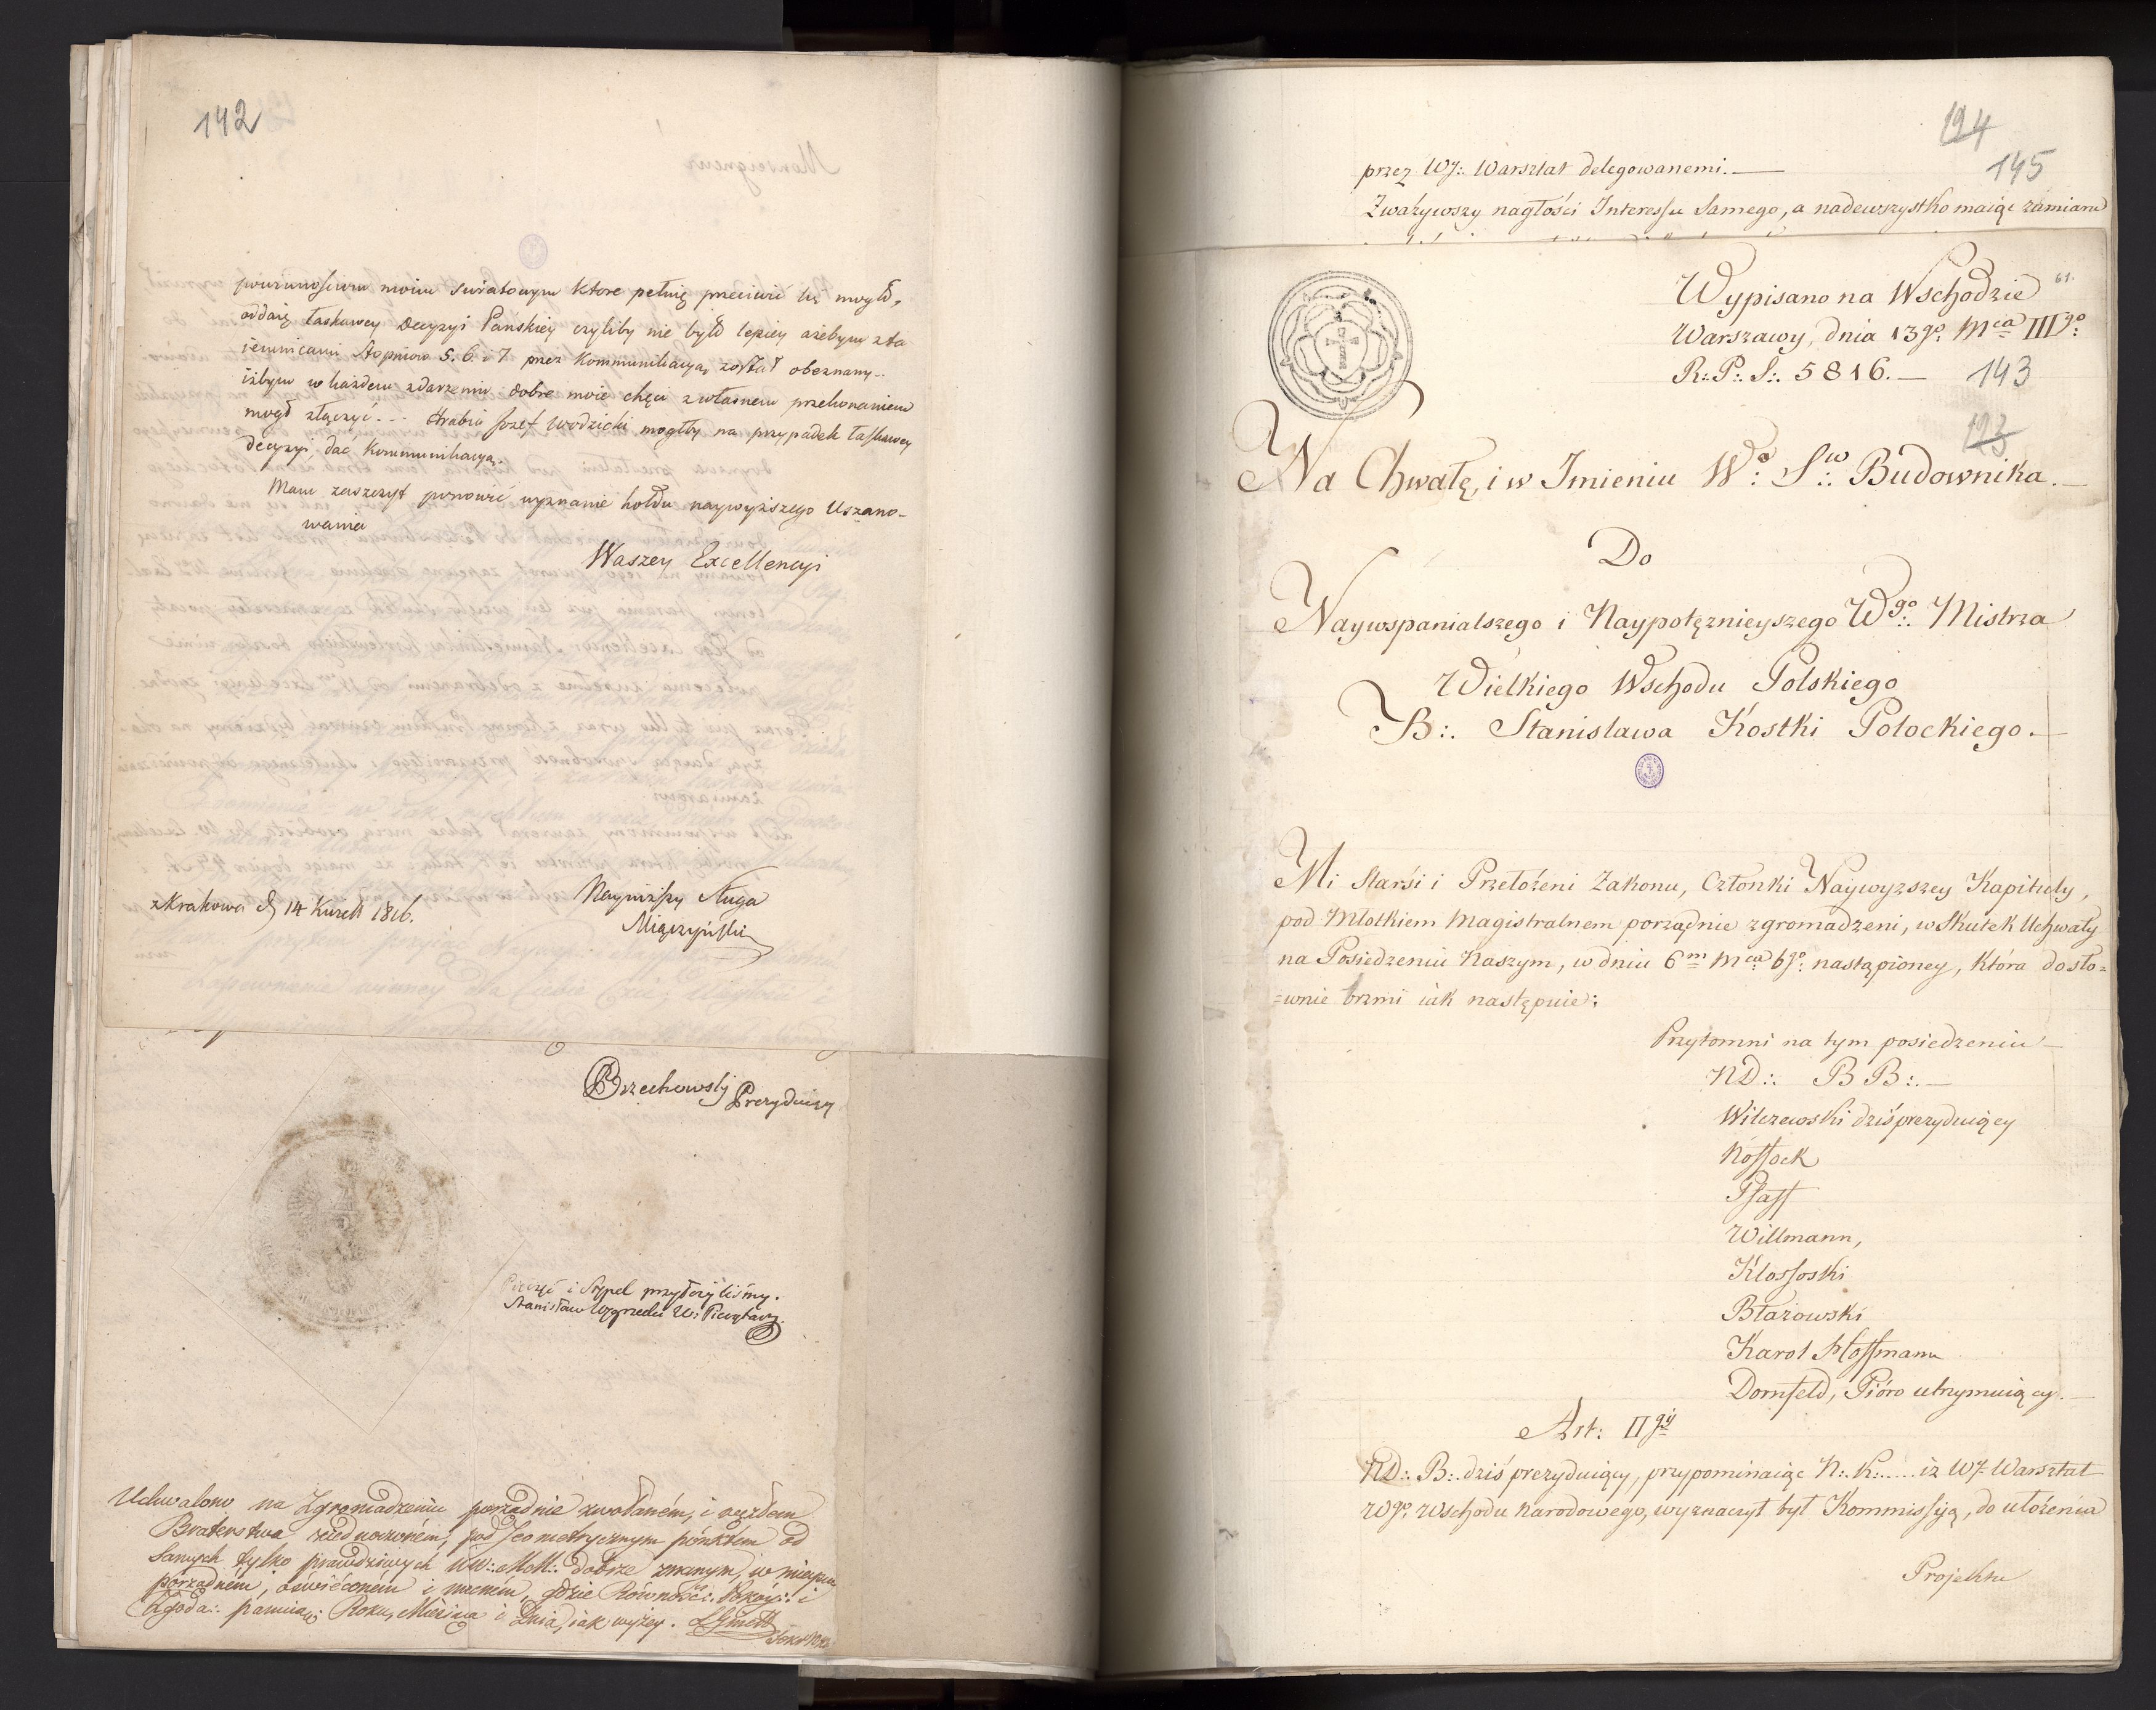 142
powinnościom moim światowym ktore pełnię przeciwić się mogło,
oddaię łaskawey Decyzyi Pańskiey czyliby nie było lepiey ażebym z ta
iemnicami Stopniow 5. 6. i 7. przez Kommunikacyą został obeznany..
iżbym w każdem zdarzeniu dobre moie chęci z własnem przekonaniem
mogł złączyć. .- Hrabia Jozef Wodzicki mogłby na przypadek łaskawey
decyzyi, dac Kommunikacyą.
Mam zaszczyt ponowić wyznanie hołdu naywyższego Uszano-
wania
Waszey Excellencyi
Nayniższy Sługa
Miączyński
z Krakowa d. 14 1816.
Brzechowski Prezyduiący
Pieczęć i Stępel przyłożyliśmy.
Stanisław Węgrzecki W: Pieczętarz.
Uchwalono na Zgromadzeniu porządnie zwołaném, i węzłem
Braterstwa ziednoczoném, pod Jeometrycznym pónktem od
Samych tylko prawdziwych WW:. MM:. dobrze znanym, w mieyscu
porządném, oświéconém i mocném, gdzie Równość:. Pokóy:. i
Zgoda:. panuią:. Roku, Miesiąca i Dnia, iak wyżey.
124
145
przez WJ:. Warsztat delegowanemi. —
Zważywszy nagłości Interessu Samego, a nadewszystko maiąc zamiarem
61.
Wypisano na Wschodzie
Warszawy, dnia 13go: Mca IIIgo:
R:. P:. S:. 5816. —
143
123
Na Chwałę, i w Imieniu Wo:. Sw:. Budownika. —
Do
Naywspanialszego i Naypotężnieyszego Wgo:. Mistrza
Wielkiego Wschodu Polskiego
B:. Stanisława Kostki Potockiego. —
Mi Starsi i Przełożeni Zakonu, Członki Naywyzszey Kapituły,
pod Młotkiem Magistralnem porządnie zgromadzeni, w Skutek Uchwały
na Posiedzeniu Naszym, w dniu 6m Mca 6go: nastąpioney, która dosło=
=wnie brzmi iak następuie:
Przytomni na tym posiedzeniu —
ND:. BB:. —
Wilczewski dziś prezyduiący
Kossock
Pfaff
Willmann,
Klossoski
Błażowski
Karol Hoffmann
Dornfeld, Pióro utrzymuiący. —
Art: IIgi
ND:. B:. dziś prezyduiący, przypominaiąc N:. K:..... iż WJ. Warsztat
Wgo: Wschodu Narodowego, wyznaczył był Kommissyią, do ułożenia
Projektu